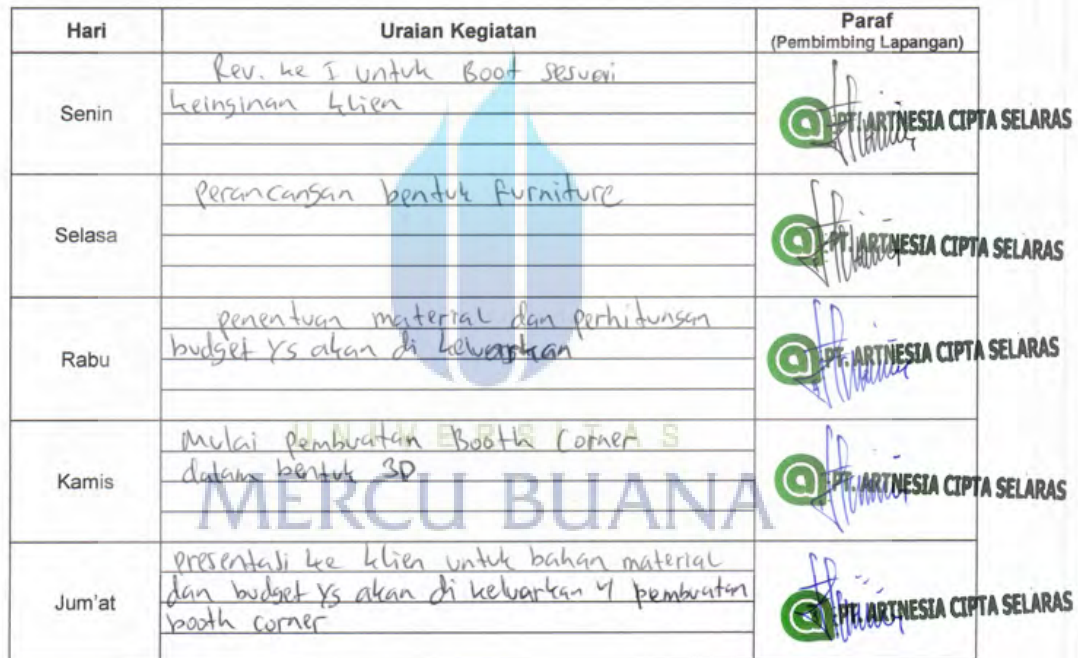 Hari Uraian Kegiatan Paraf
(Pembimbing Lapangan)
Senin
Rev. ke I untuk Boot sesuai
keinginan klien
PT. ARTNESIA CIPTA SELARAS
Selasa
Perancangan bentuk furniture
PT. ARTNESIA CIPTA SELARAS
Rabu
penentuan material dan perhitungan
budget yg akan di keluarkan
PT. ARTNESIA CIPTA SELARAS
Kamis
Mulai Pembuatan Booth Corner
dalam bentuk 3D
PT. ARTNESIA CIPTA SELARAS
UNIVERSITAS
MERCU BUANA
Jum'at
presentasi ke klien untuk bahan material
dan budget yg akan di keluarkan u pembuatan
booth corner
PT. ARTNESIA CIPTA SELARAS